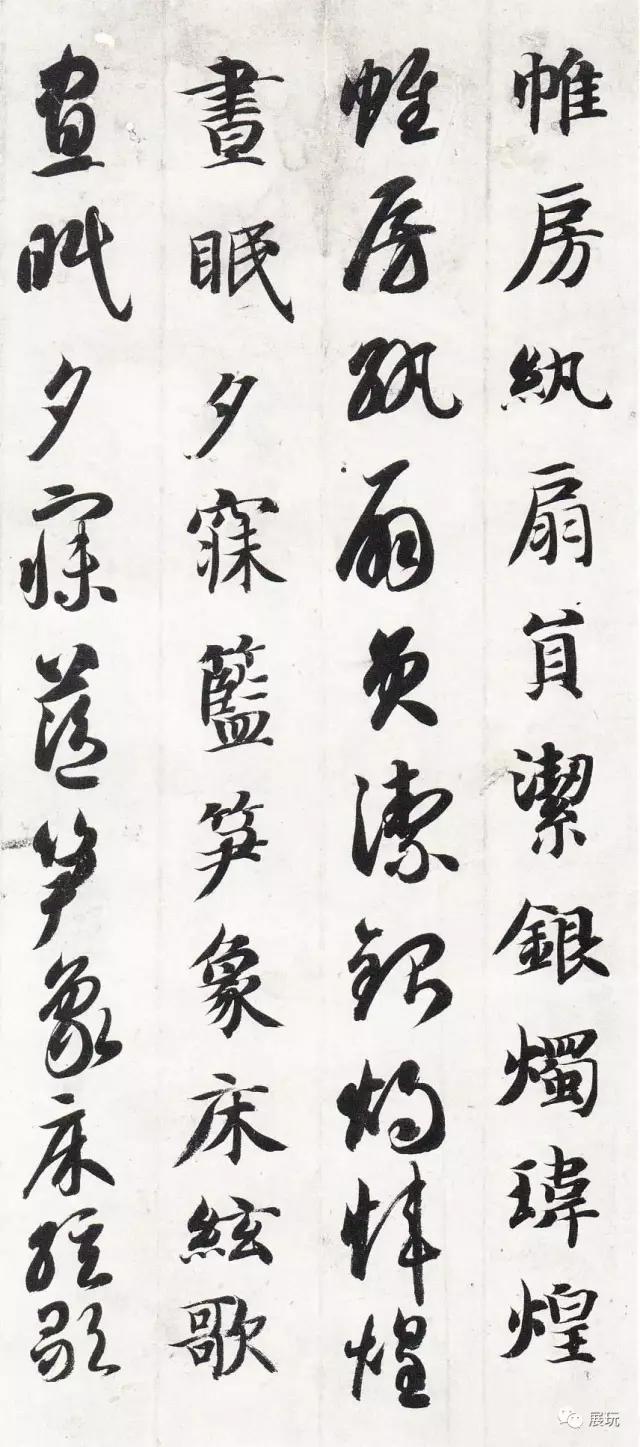 帷房紈扇員潔銀燭瑋煌
帷房紈扇員潔銀燭煒煌
晝眠夕寐籃笋象床絃歌
晝眠夕寐藍笋象床絃歌
展玩